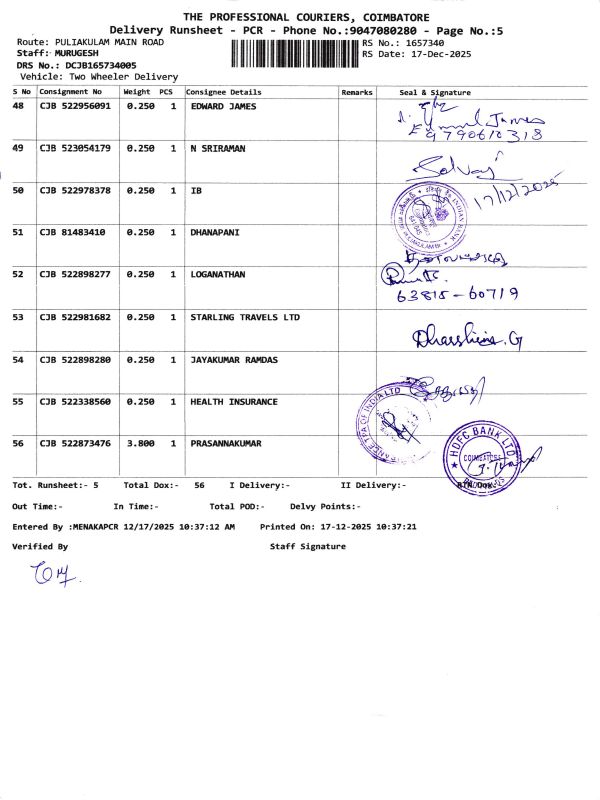 THE PROFESSIONAL COURIERS, COIMBATORE
Delivery Runsheet - PCR - Phone No.:9047080280 - Page No.:5
Route: PULIAKULAM MAIN ROAD
RS No.: 1657340
Staff: MURUGESH
RS Date: 17-Dec-2025
DRS No.: DCJB165734005
Vehicle: Two Wheeler Delivery
S No Consignment No Weight PCS Consignee Details Remarks Seal & Signature
48 CJB 522956091 0.250 1 EDWARD JAMES
James
9790610318
49 CJB 523054179 0.250 1 N SRIRAMAN
Selvaj
50 CJB 522978378 0.250 1 IB
17/12/2025
INDIAN BANK
51 CJB 81483410 0.250 1 DHANAPANI
52 CJB 522898277 0.250 1 LOGANATHAN
63815-60719
53 CJB 522981682 0.250 1 STARLING TRAVELS LTD
Dharshini.G
54 CJB 522898280 0.250 1 JAYAKUMAR RAMDAS
55 CJB 522338560 0.250 1 HEALTH INSURANCE
OF INDIA LTD
56 CJB 522873476 3.800 1 PRASANNAKUMAR
HDFC BANK LTD
COIMBATORE
Tot. Runsheet:- 5 Total Dox:- 56 I Delivery:- II Delivery:-
Out Time:- In Time:- Total POD:- Delvy Points:-
Entered By :MENAKAPCR 12/17/2025 10:37:12 AM Printed On: 17-12-2025 10:37:21
Verified By Staff Signature